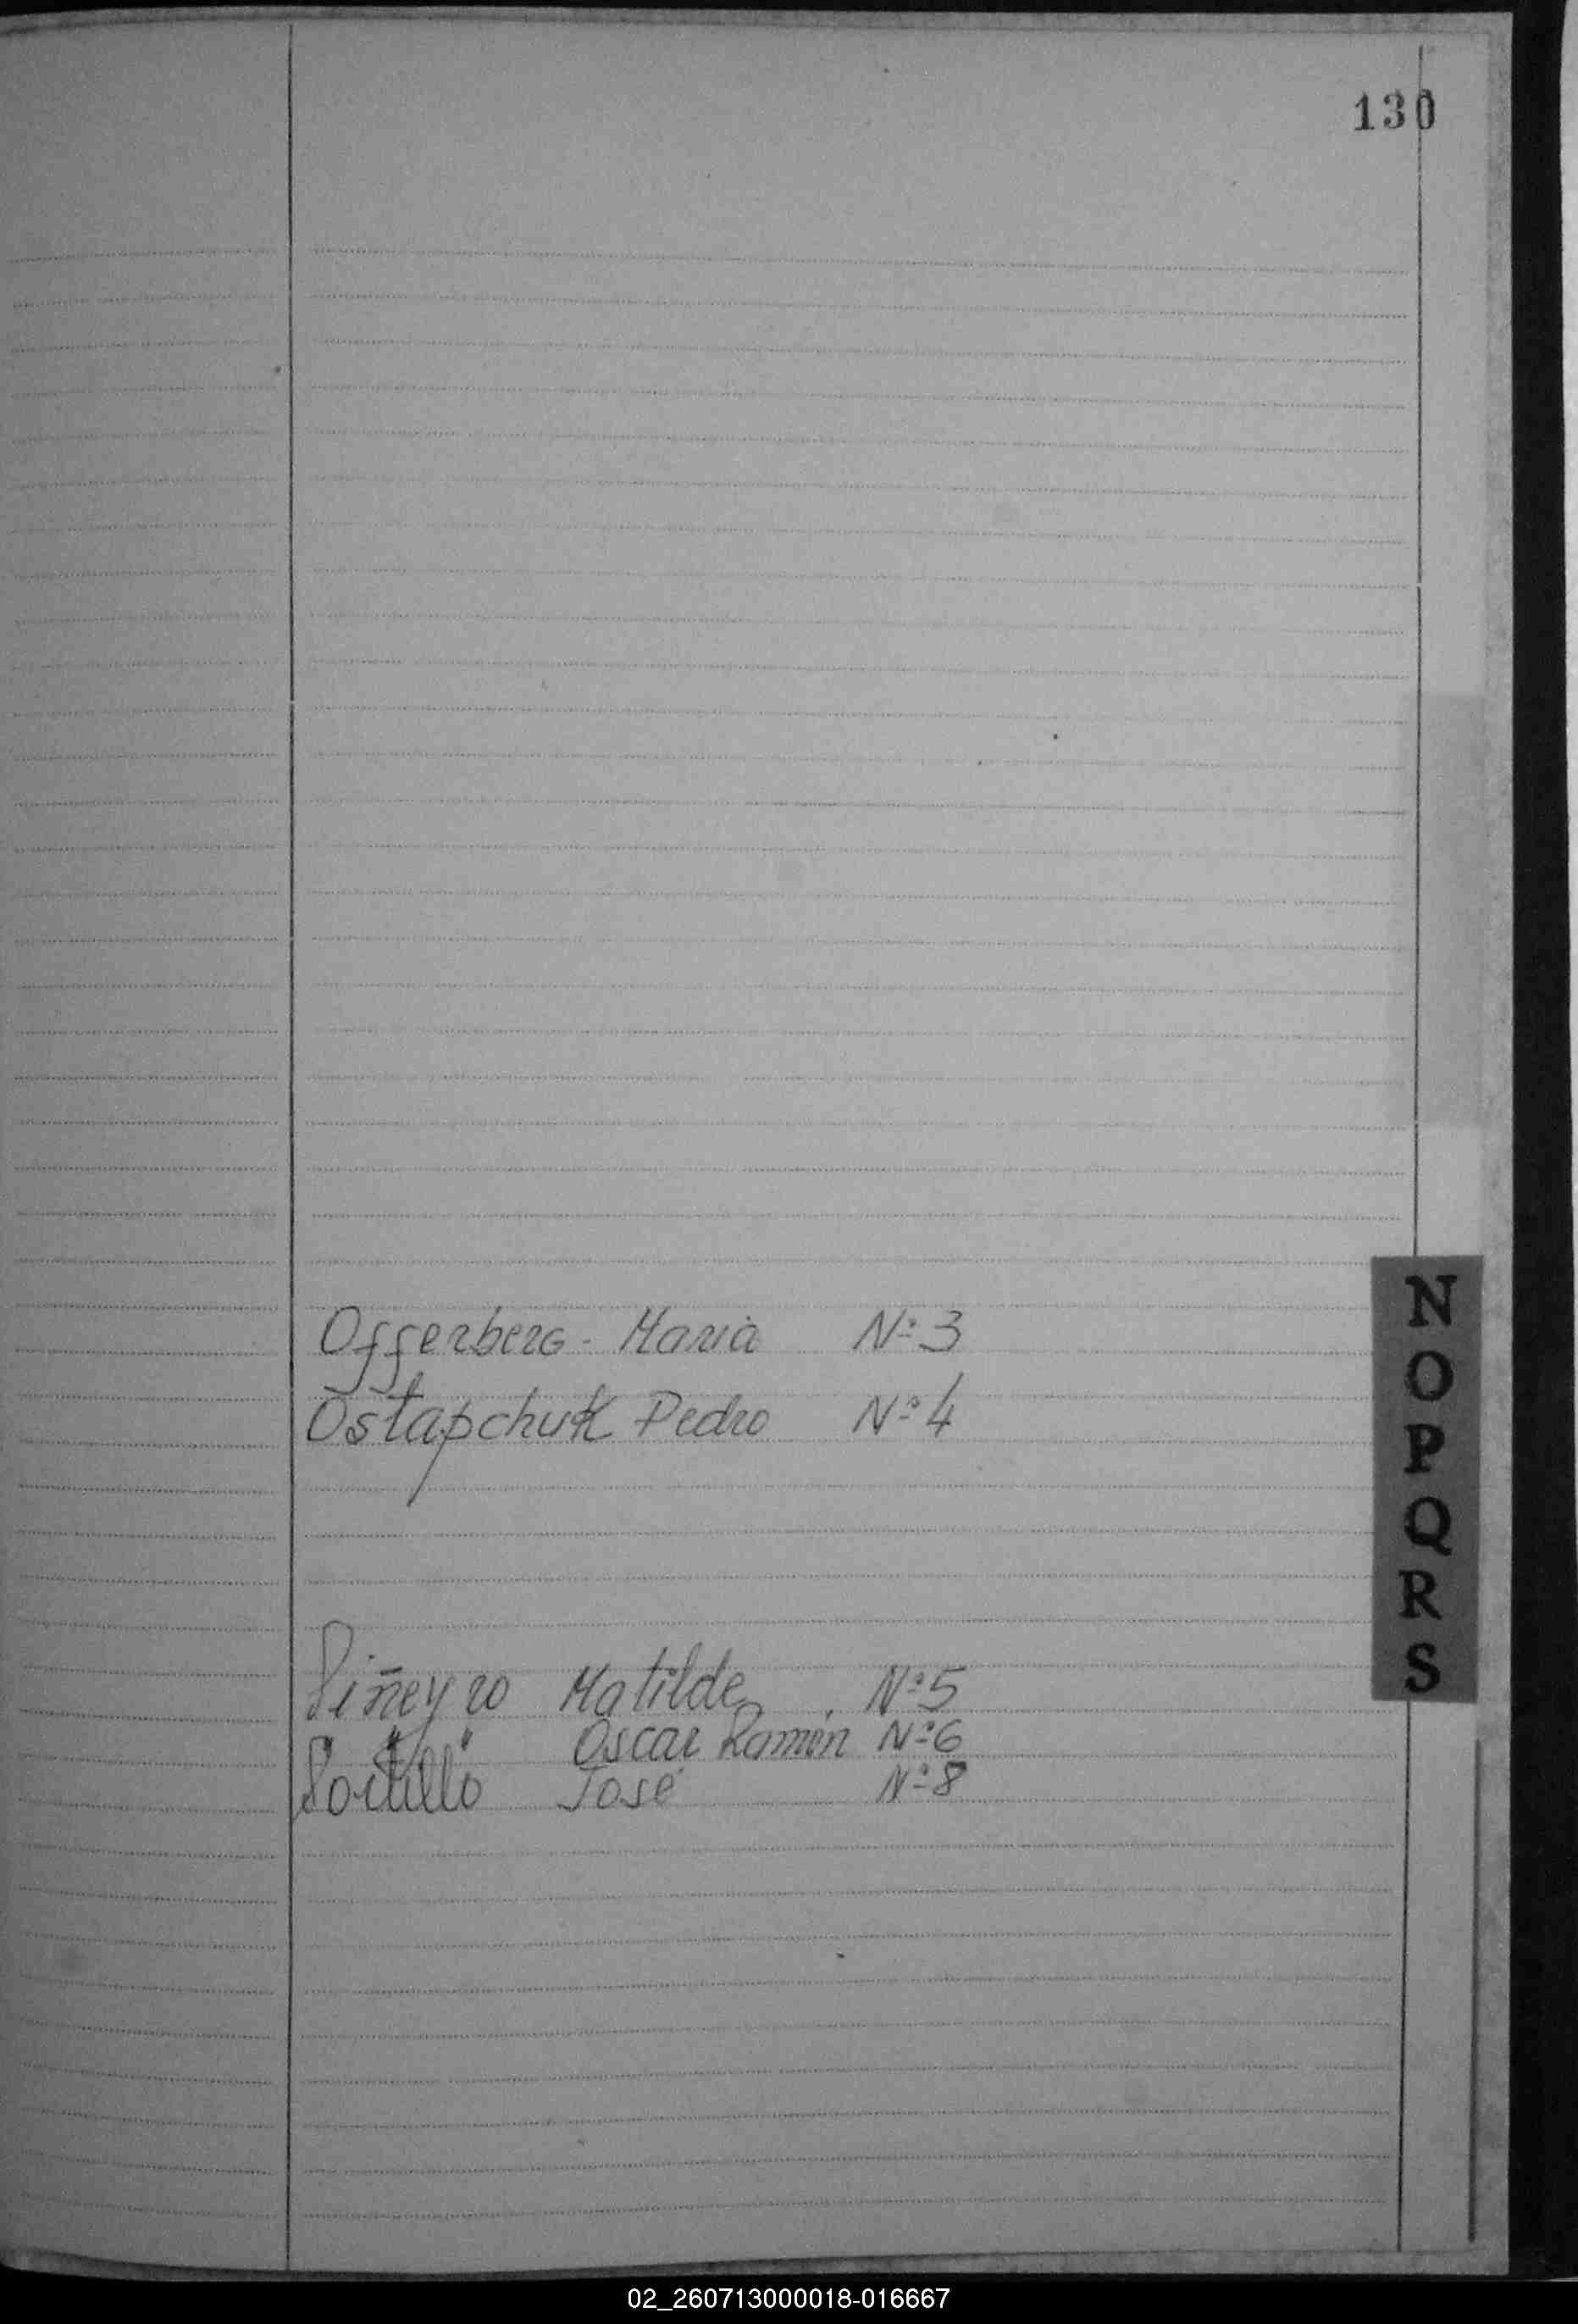 130
Offerberg - Maria Nº 3
Ostapchuk Pedro Nº 4
Piñeyro Matilde Nº 5
" " " Oscar Ramón Nº 6
Portillo José Nº 8
N
O
P
Q
R
S
02_260713000018-016667